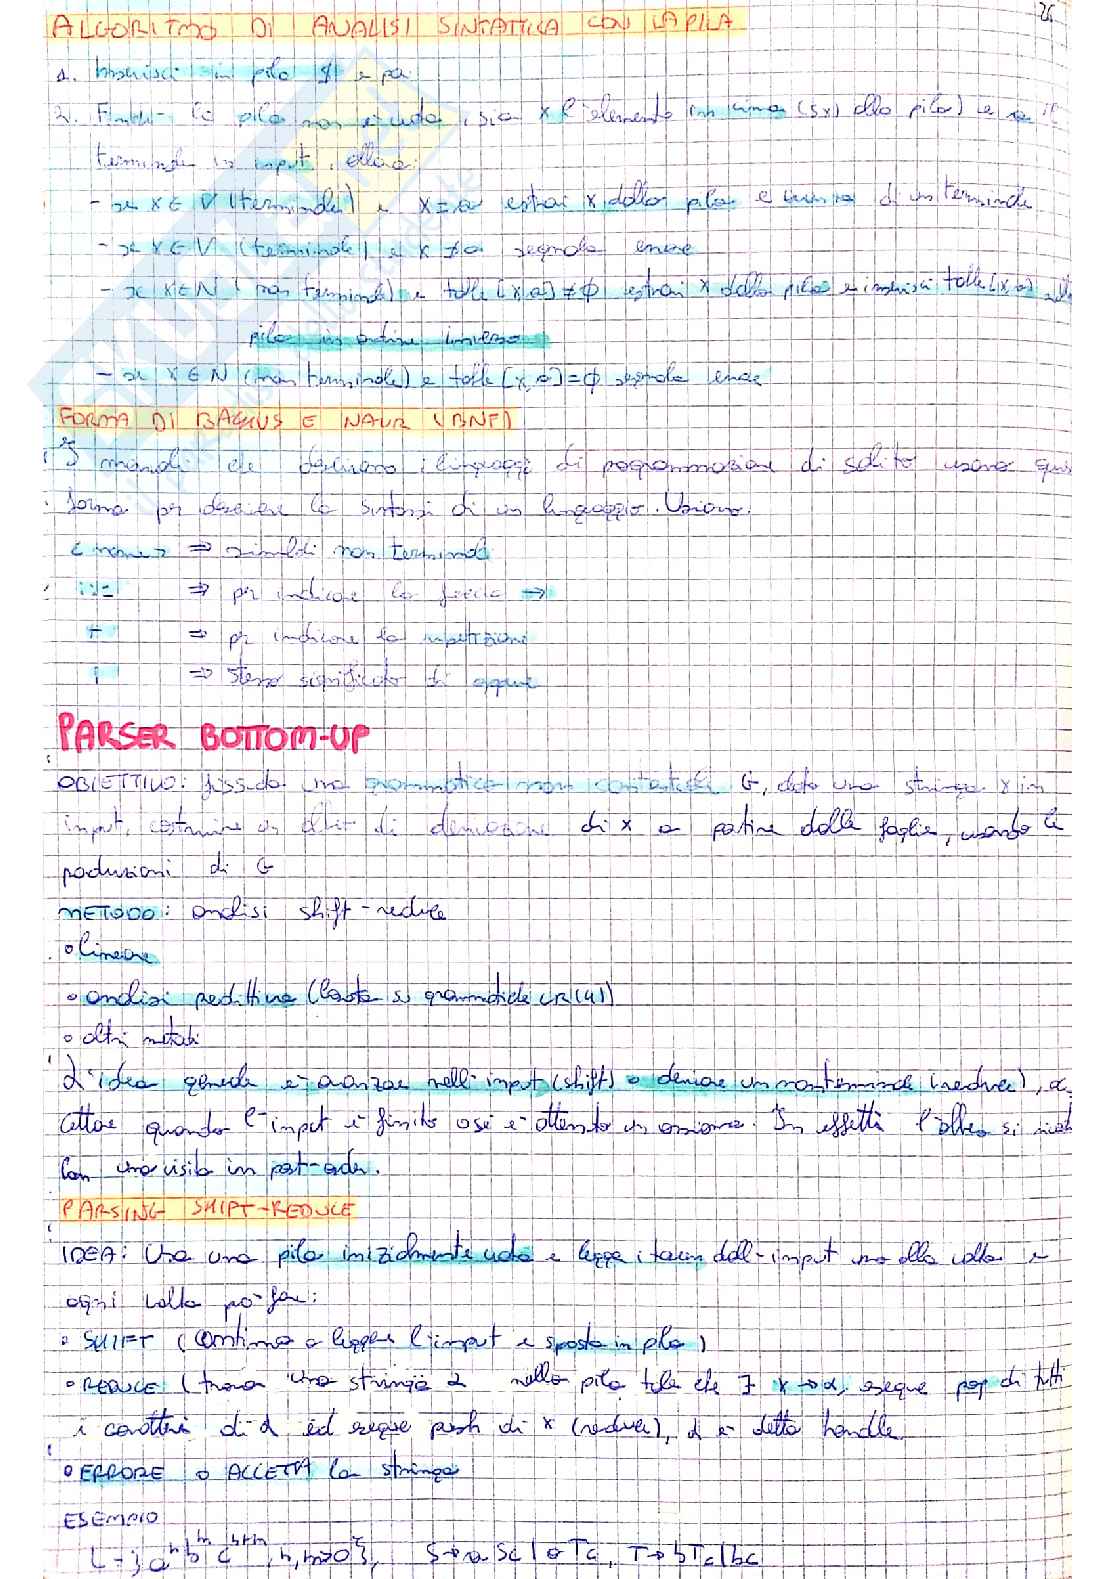 26
ALGORITMO DI ANALISI SINTATTICA CON LA PILA
1. Inserisci in pila $ e poi
2. Finché la pila non è vuota, sia x l'elemento in cima (sx) alla pila) e a il
terminale in input, allora:
- se x ∈ V (terminale) e x=a estrai x dalla pila e avanza di un terminale
- se x ∈ V (terminale) e x ≠ a segnala errore
- se x ∈ N (non terminale) e tolle[x,a] ≠ ϕ, estrai x dalla pila e inserisci tolle[x,a] nella
pila in ordine inverso
- se x ∈ N (non terminale) e tolle [x,a] = ϕ segnala errore
FORMA DI BACKUS E NAUR (BNF)
I manuali che descrivono i linguaggi di programmazione di solito usano questa
forma per descrivere la sintassi di un linguaggio. Usiamo:
< nome > ⇒ simboli non terminali
::= ⇒ per indicare la freccia →
+ ⇒ per indicare la ripetizioni
| ⇒ stesso significato di oppure
PARSER BOTTOM-UP
OBIETTIVO: fissata una grammatica non contestuale G, data una stringa x in
input, costruire un albero di derivazione di x a partire dalle foglie, usando le
produzioni di G
METODO: analisi shift-reduce
• lineare
• analisi predittiva (basta su grammatiche LR(1))
• altri metodi
L'idea generale è avanzare nell'input (shift) o derivare un non terminale (reduce), ac
cettare quando l'input è finito osi è ottenuto un assioma. In effetti l'albero si
con una visita in post-order.
PARSING SHIFT-REDUCE
IDEA: Usa una pila inizialmente vuota e legge i token dall'input uno alla volta e
ogni volta può fare:
• SHIFT (continua a leggere l'input e sposta in pila)
• REDUCE (trova una stringa α nella pila tale che ∃ x→α, esegue pop di tutti
i caratteri di α ed esegue push di x (reduce), α è detta handle
• ERRORE o ACCETTA la stringa
ESEMPIO
L = { aⁿ bᵐ cⁿ⁺ᵐ, n,m>0}, S→aSc|aTc, T→bTc|bc